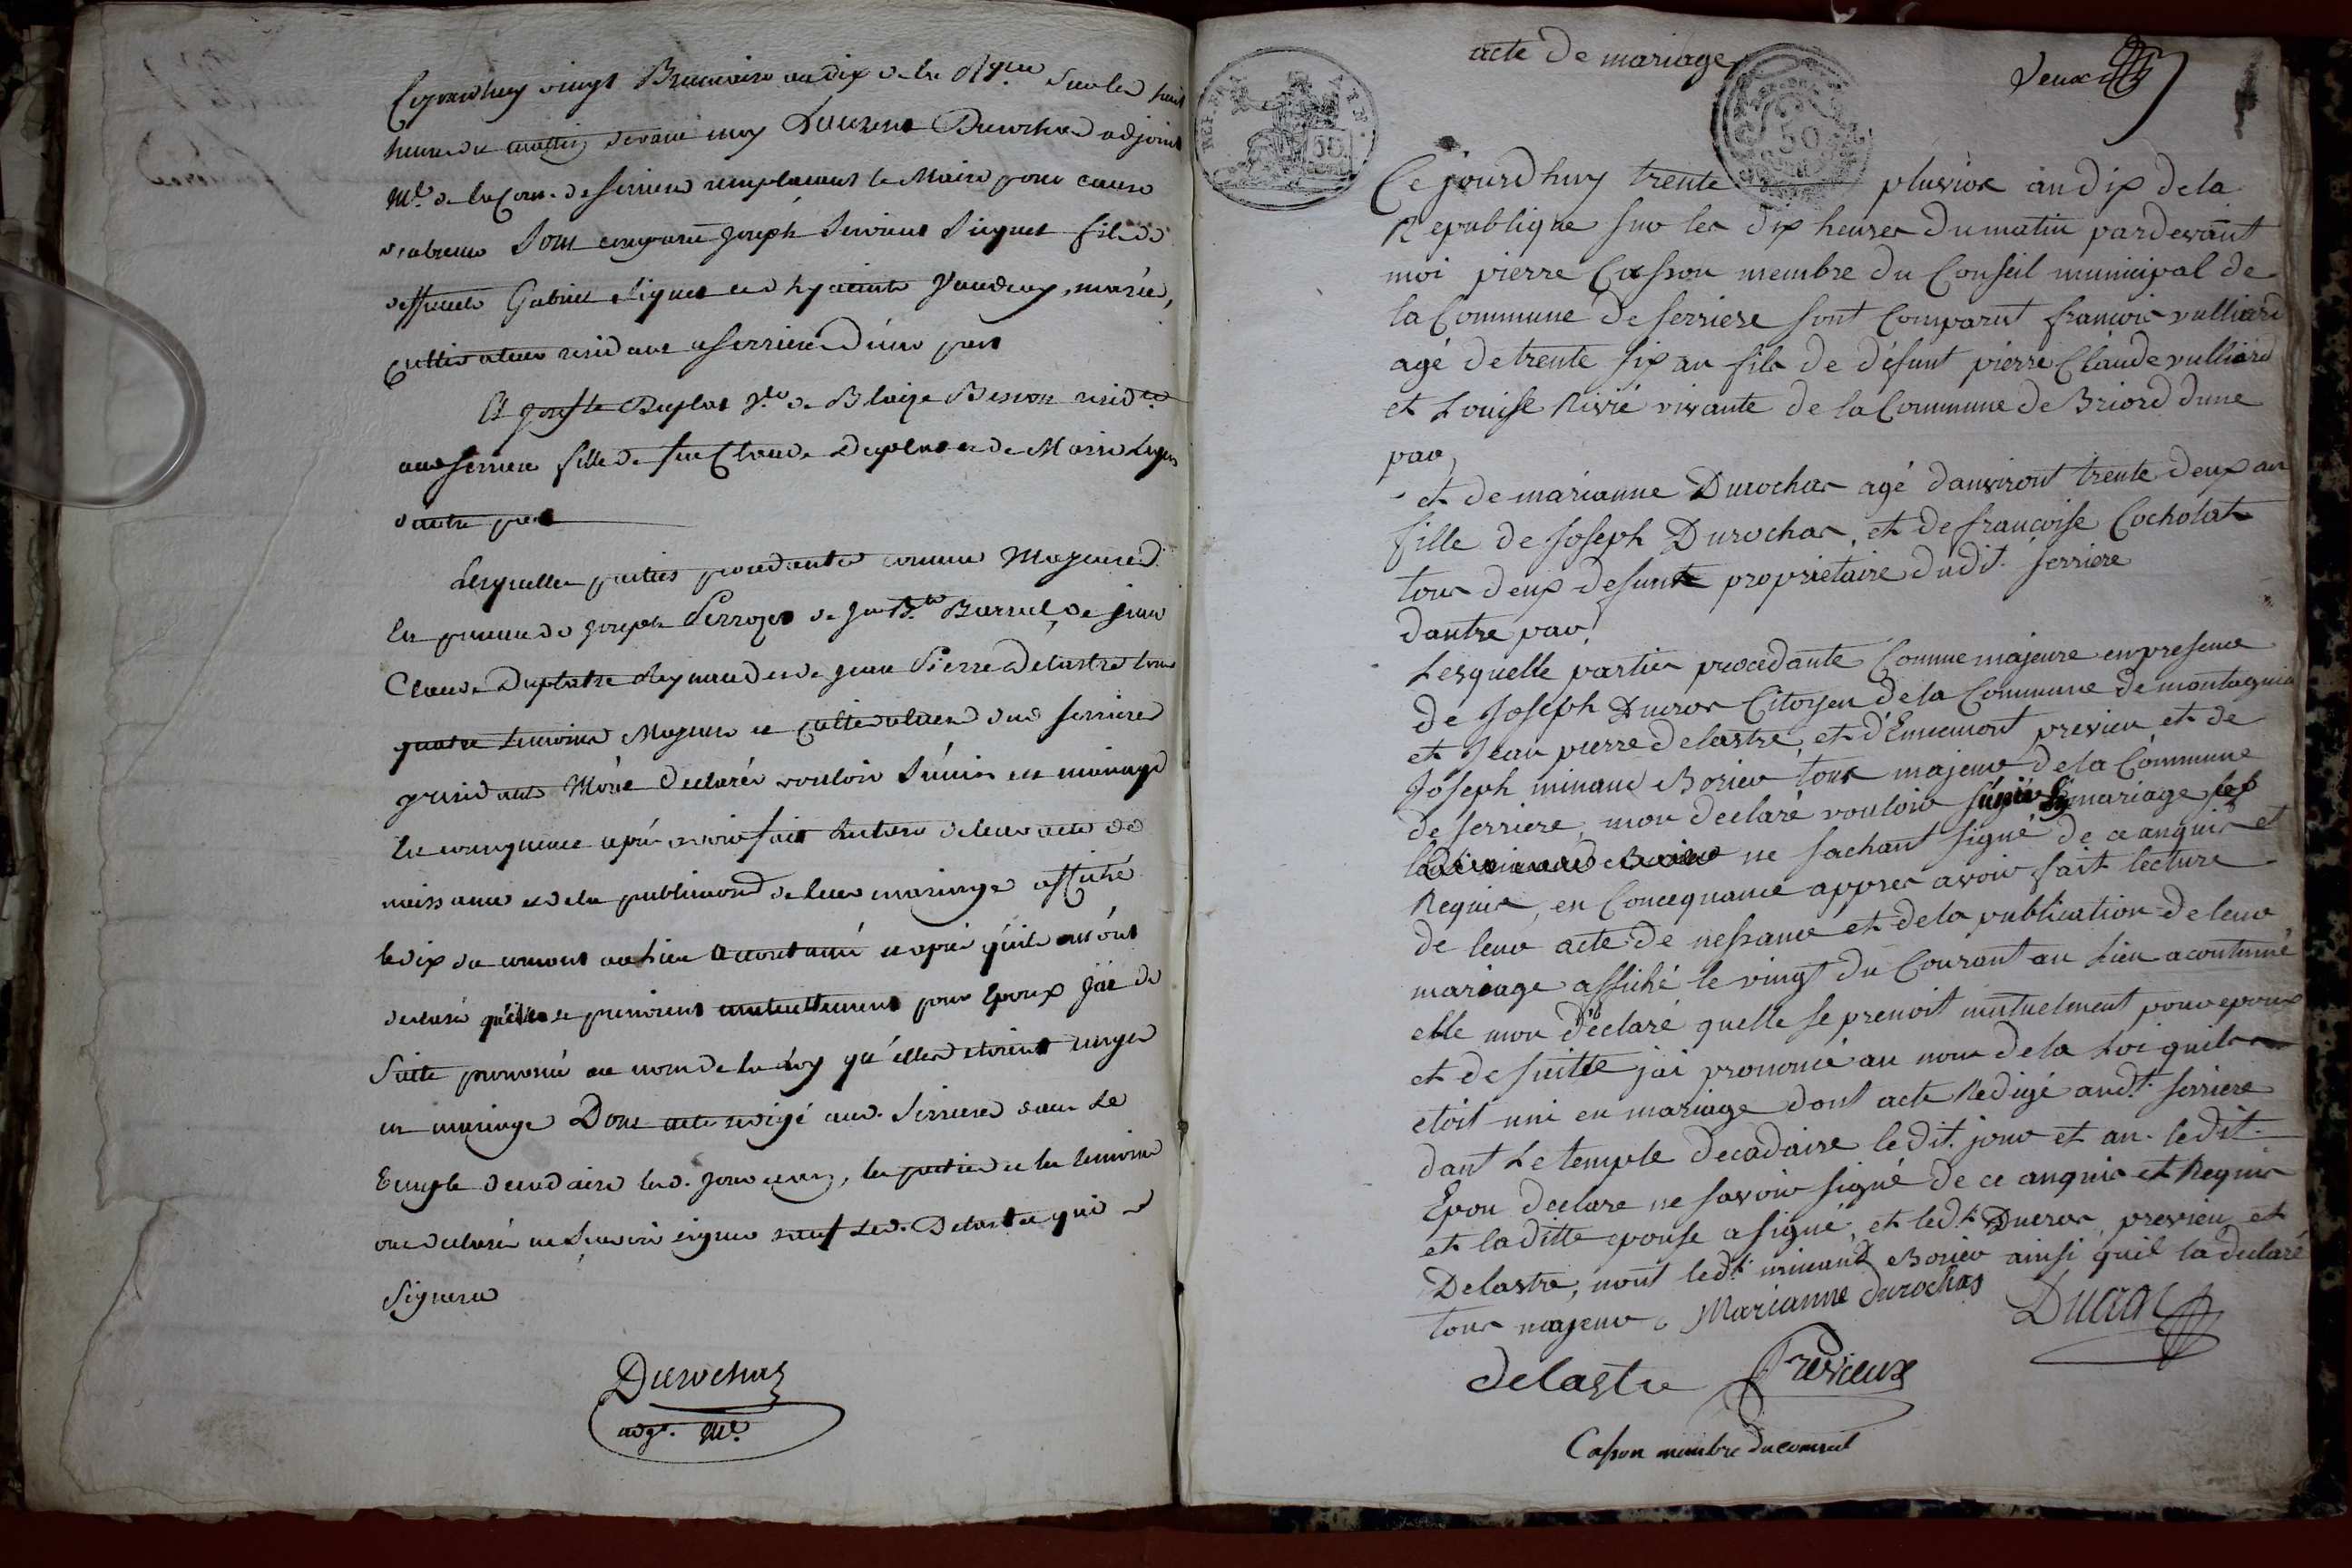 Cejourdhuy vingt Brumaire an dix de la Rque sur les huit
heures du matin devant moy Laurent Durochas adjoint
Ml. de la Com. de Serriere remplacant le Maire pour cause
d'absence Sont comparu Joseph Siquet fils de
deffunts Gabriel Siquet et d hyacinte mariés,
Cultivateur residant a Serriere d'une part
Et Joste Duplat Vve de Blaize Besson resid.te
aud Serriere fille de feu Claude Duplat et de Marie
d'autre part
Lesquelles parties procedantes comme Majeures
En presence de Joseph Perrozet de Jean B.te Burtel, de jean
Claude Duplatre Reynaud et de Jean Pierre Delastre tous
quatre temoins Majeurs et Cultivateurs dud Serriere
y residants M'ont declarés vouloir S'unir en mariage
En consequence après avoir fait lecture de leur acte de
naissance et de la publication de leur mariage affiché
le dix du courant au lieu accoutumé et après qu'ils m'ont
declaré qu'elles se prenoient mutuellement pour Epoux j'ai de
Suitte prononcé au nom de la Loy qu'elles etoient unyes
en mariage Dont acte redigé aud. Serriere dans Le
Temple decadaire lesd. jour et an, les parties et les temoins
ont declarés ne Sçavoir signer sauf Led. Delastre qui a
Signé
Durochas
adjt. Ml.
acte de mariage
REP. FRA
50
50
Deux
Ce jourdhuy trente pluviose an dix de la
Republique sur les dix heures du matin pardevant
moi pierre Casson membre du Conseil municipal de
la Commune de serriere sont Comparut francois vulliard
agé de trente six an fils de défunt pierre Claude vulliard
et Louise Rivié vivante de la Commune de Briord dune
par,
et de marianne Durochas agé danviront trente deux an
fille de Joseph Durochas, et de francoise Cocholat
tous deux defunts propriétaire dudit. serriere
dautre par
Lesquelle parties procedante Comme majeure en presence
de Joseph Ducros Citoyen de la Commune de montagnieu
et Jean pierre delastre, et d'Ennemont previeu et de
Joseph minaud Borieu tous majeur de la Commune
de serriere, mon declaré vouloir s'unir En mariage
ne sachant signé de ce anquis et
Requis, en Concequance appres avoir fait lecture
de leur acte de nessance et de la publication de leur
mariage affiché le vingt du Courant au Lieu acoutumé
elle mon déclaré quelle se prenoit mutuelment pour epoux
et de suitte jai prononcé au nom de la Loi quils
etoit uni en mariage dont acte Redigé aud.t serriere
dant Le temple decadaire le dit. jour et an. le dit.
Epou declare ne savoir signé de ce anquis et Requis
et la ditte epouse a signé, et led.t Ducros, previeu et
Delastre, nont led.t minaud Borieu ainsi quil la declaré
tous majeur. Marianne durochas
Ducros
delastre Prévieux
Casson membre du conseil